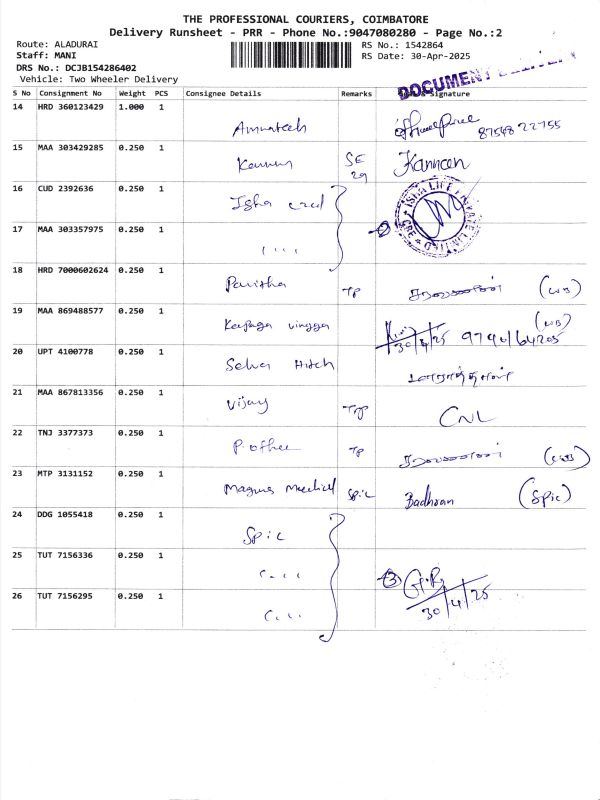 THE PROFESSIONAL COURIERS, COIMBATORE
Delivery Runsheet - PRR - Phone No.:9047080280 - Page No.:2
Route: ALADURAI
Staff: MANI
DRS No.: DCJB154286402
Vehicle: Two Wheeler Delivery
RS No.: 1542864
RS Date: 30-Apr-2025
DOCUMENT
S No Consignment No Weight PCS Consignee Details Remarks Signature
14 HRD 360123429 1.000 1
87548 22755
15 MAA 303429285 0.250 1 Kannan SE 29 Kannan
16 CUD 2392636 0.250 1 Isha
ISHA LIFE PRIVATE LIMITED CBE
17 MAA 303357975 0.250 1 ''''
18 HRD 7000602624 0.250 1 Pavitha TP
19 MAA 869488577 0.250 1
30/4/25 9790164205
20 UPT 4100778 0.250 1 Selva Hitech
21 MAA 867813356 0.250 1 Vijay TP CNL
22 TNJ 3377373 0.250 1 P. office TP
23 MTP 3131152 0.250 1 Magnus Medical Spic Badhran (Spic)
24 DDG 1055418 0.250 1 Spic
25 TUT 7156336 0.250 1 ''''
G.R
30/4/25
26 TUT 7156295 0.250 1 ''''